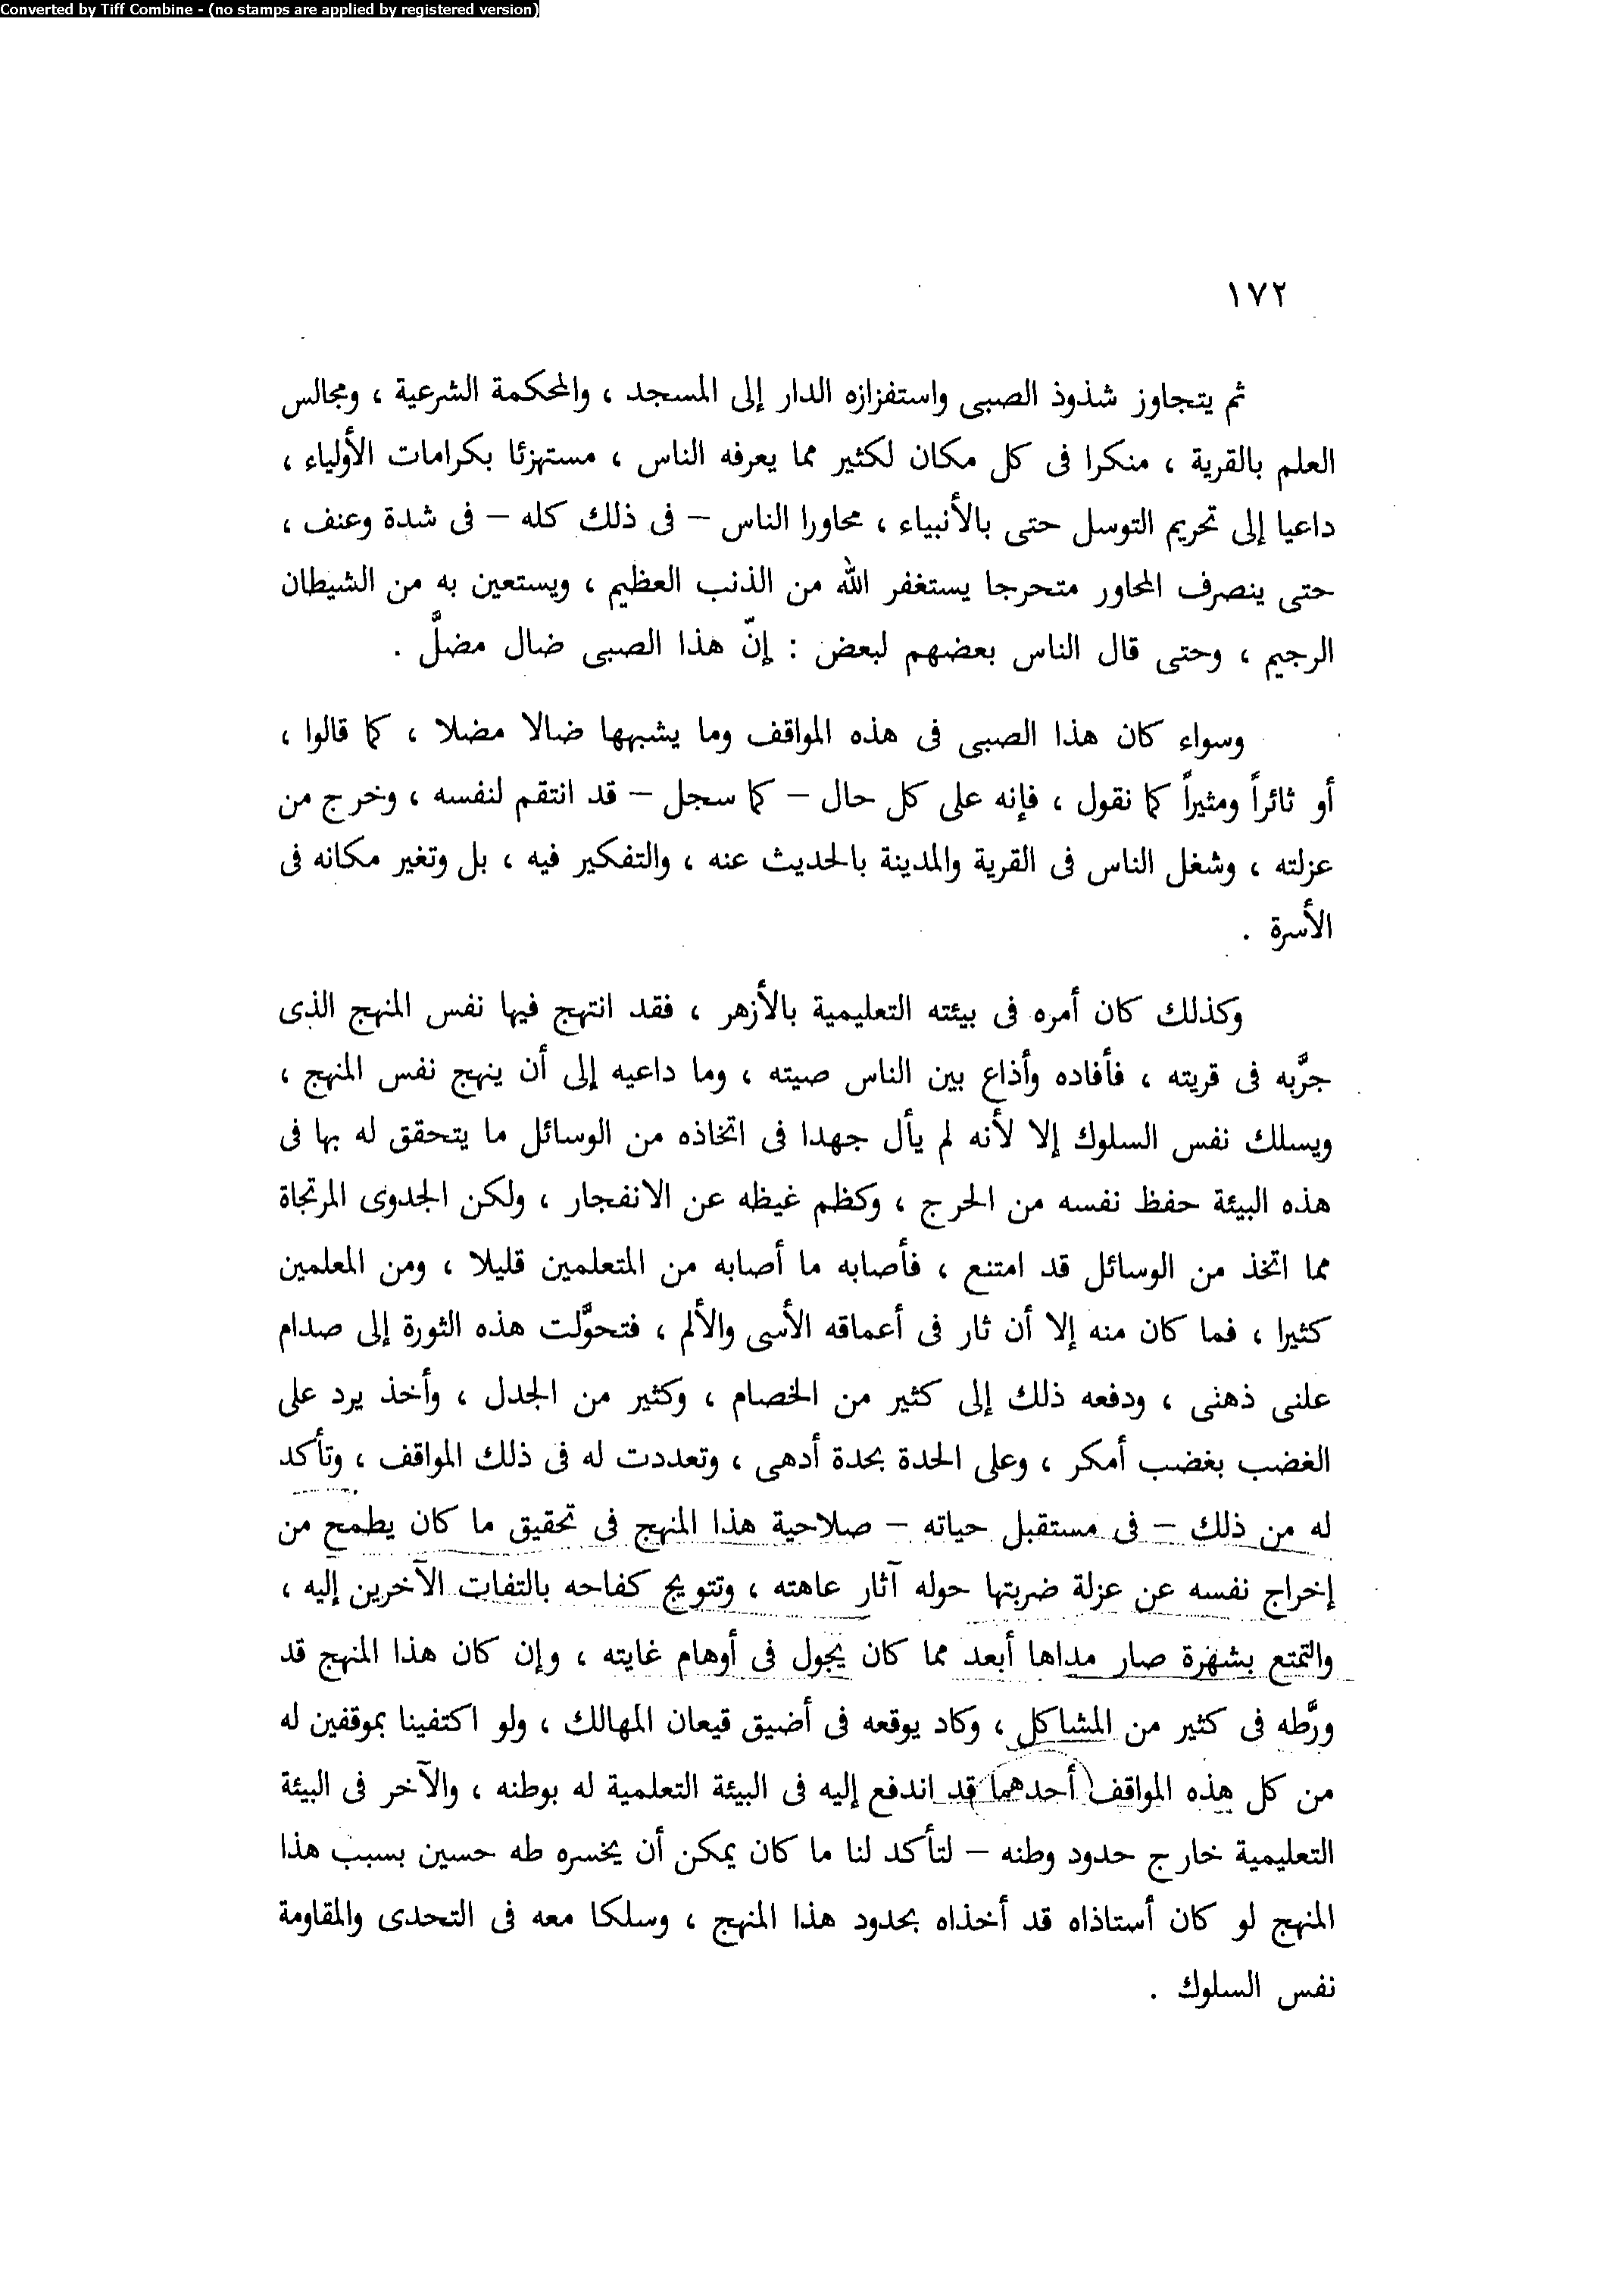 Converted by Tiff Combine - (no stamps are applied by registered version)
١٧٢
ثم يتجاوز شذوذ الصبى واستفزازه الدار إلى المسجد ، والمحكمة الشرعية ، ومجالس
العلم بالقرية ، منكرا فى كل مكان لكثير مما يعرفه الناس ، مستهزئا بكرامات الأولياء ،
داعيا إلى تحريم التوسل حتى بالأنبياء ، محاورا الناس – فى ذلك كله – فى شدة وعنف ،
حتى ينصرف المحاور متحرجا يستغفر الله من الذنب العظيم ، ويستعين به من الشيطان
الرجيم ، وحتى قال الناس بعضهم لبعض : إنّ هذا الصبى ضال مضلَّ .
وسواء كان هذا الصبى فى هذه المواقف وما يشبهها ضالا مضلا ، كما قالوا ،
أو ثائراً ومثيراً كما نقول ، فإنه على كل حال – كما سجل – قد انتقم لنفسه ، وخرج من
عزلته ، وشغل الناس فى القرية والمدينة بالحديث عنه ، والتفكير فيه ، بل وتغير مكانه فى
الأسرة .
وكذلك كان أمره فى بيئته التعليمية بالأزهر ، فقد انتهج فيها نفس المنهج الذى
جرَّبه فى قريته ، فأفاده وأذاع بين الناس صيته ، وما داعيه إلى أن ينهج نفس المنهج ،
ويسلك نفس السلوك إلا لأنه لم يأل جهدا فى اتخاذه من الوسائل ما يتحقق له بها فى
هذه البيئة حفظ نفسه من الحرج ، وكظم غيظه عن الانفجار ، ولكن الجدوى المرتجاة
مما اتخذ من الوسائل قد امتنع ، فأصابه ما أصابه من المتعلمين قليلا ، ومن المعلمين
كثيرا ، فما كان منه إلا أن ثار فى أعماقه الأسى والألم ، فتحوَّلت هذه الثورة إلى صدام
علنى ذهنى ، ودفعه ذلك إلى كثير من الخصام ، وكثير من الجدل ، وأخذ يرد على
الغضب بغضب أمكر ، وعلى الحدة بحدة أدهى ، وتعددت له فى ذلك المواقف ، وتأكد
له من ذلك – فى مستقبل حياته – صلاحية هذا المنهج فى تحقيق ما كان يطمح من
إخراج نفسه عن عزلة ضربتها حوله آثار عاهته ، وتتويج كفاحه بالتفات الآخرين إليه ،
والتمتع بشهرة صار مداها أبعد مما كان يجول فى أوهام غايته ، وإن كان هذا المنهج قد
ورَّطه فى كثير من المشاكل ، وكاد يوقعه فى أضيق قيعان المهالك ، ولو اكتفينا بموقفين له
من كل هذه المواقف أحدهما قد اندفع إليه فى البيئة التعلمية له بوطنه ، والآخر فى البيئة
التعليمية خارج حدود وطنه – لتأكد لنا ما كان يمكن أن يخسره طه حسين بسبب هذا
المنهج لو كان أستاذاه قد أخذاه بحدود هذا المنهج ، وسلكا معه فى التحدى والمقاومة
نفس السلوك .